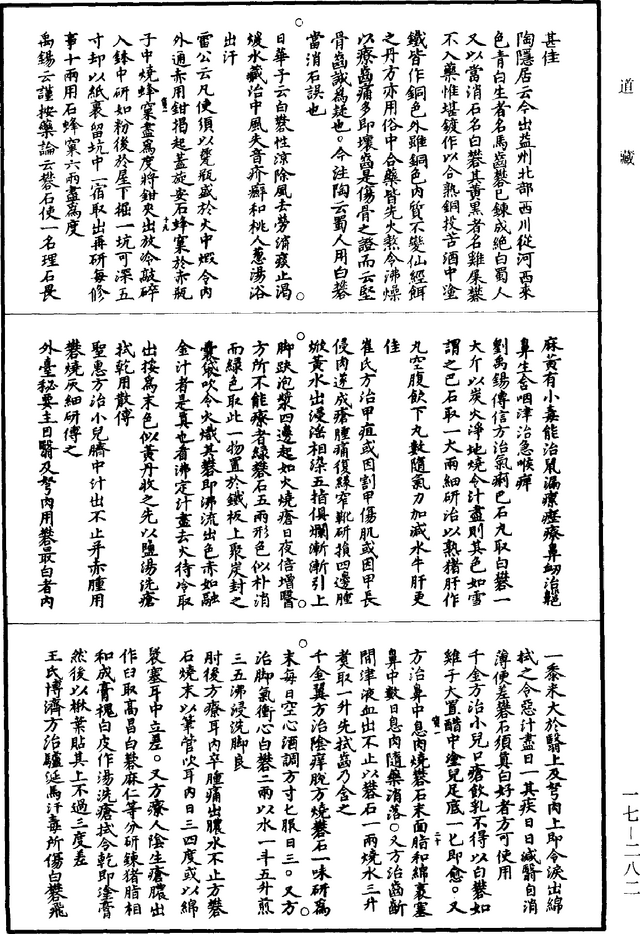 道藏
甚佳
陶隱居云今出益州北部西川從河西來
色青白生者名馬齒礬已鍊成絕白蜀人
又以當消石名白礬其黃黑者名雞屎礬
不入藥惟堪鍍作以合熟銅投苦酒中塗
鐵皆作銅色外雖銅色內質不變仙經餌
之丹方亦用俗中合藥皆先火熬令沸燥
以療齒痛多即壞齒是傷骨之證而云堅
骨齒誠為疑也。今注陶云蜀人用白礬
當消石誤也
日華子云白礬性涼除風去勞消痰止渴
煖水藏治中風失音疥癬和桃人蔥湯浴
出汗
雷公云凡使須以瓷瓶盛於火中煅令內
外通赤用鉗揭起蓋旋安石蜂窠於赤瓶
子中燒蜂窠盡為度將鉗夾出放冷敲碎
入鉢中研如粉後於屋下掘一坑可深五
寸却以紙裹留坑中一宿取出再研每修
事十兩用石蜂窠六兩盡為度
禹錫云謹按藥論云礬石使一名理石畏
麻黃有小毒能治鼠漏瘰癧療鼻衂治齆
鼻生含咽津治急喉痺
劉禹錫傳信方治氣痢巴石丸取白礬一
大斤以炭火淨地燒令汁盡則其色如雪
謂之巴石取一大兩細研治以熟猪肝作
丸空腹飲下丸數隨氣力加減水牛肝更
佳
崔氏方治甲疽或因割甲傷肌或因甲長
侵肉遂成瘡腫痛復緣窄靴研損四邊腫
焮黃水出浸淫相染五指俱爛漸漸引上
脚趺泡漿四邊起如火燒瘡日夜倍增醫
方所不能療者綠礬石五兩形色似朴消
而綠色取此一物置於鐵板上聚炭封之
囊袋吹令火熾其礬即沸流出色赤如融
金汁者是真也看沸定汁盡去火待冷取
出挼為末色似黃丹收之先以鹽湯洗瘡
拭乾用散傅
聖惠方治小兒臍中汁出不止并赤腫用
礬燒灰細研傅之
外臺秘要主目瞖及弩肉用礬最白者內
一黍米大於瞖上及弩肉上即令淚出綿
拭之令惡汁盡日一其疾日日減瞖自消
薄便差礬石須真白好者方可使用
千金方治小兒口瘡飲乳不得以白礬如
雞子大置醋中塗兒足底一七即愈。又
方治鼻中息肉燒礬石末面脂和綿裹塞
鼻中數日息肉隨藥消落。又方治齒齗
間津液血出不止以礬石一兩燒水三升
煑取一升先拭齒乃含之
千金翼方治陰痒脫方燒礬石一味研為
末每日空心酒調方寸匕服日三。又方
治脚氣衝心白礬二兩以水一斗五升煎
三五沸浸洗脚良
肘後方療耳內卒腫痛出膿水不止方礬
石燒末以筆管吹耳內日三四度或以綿
裹塞耳中立差。又方療人陰生瘡膿出
作臼取高昌白礬麻仁等分研鍊猪脂相
和成膏槐白皮作湯洗瘡拭令乾即塗膏
然後以楸葉貼其上不過三度差
王氏博濟方治驢涎馬汗毒所傷白礬飛
一七－二八二